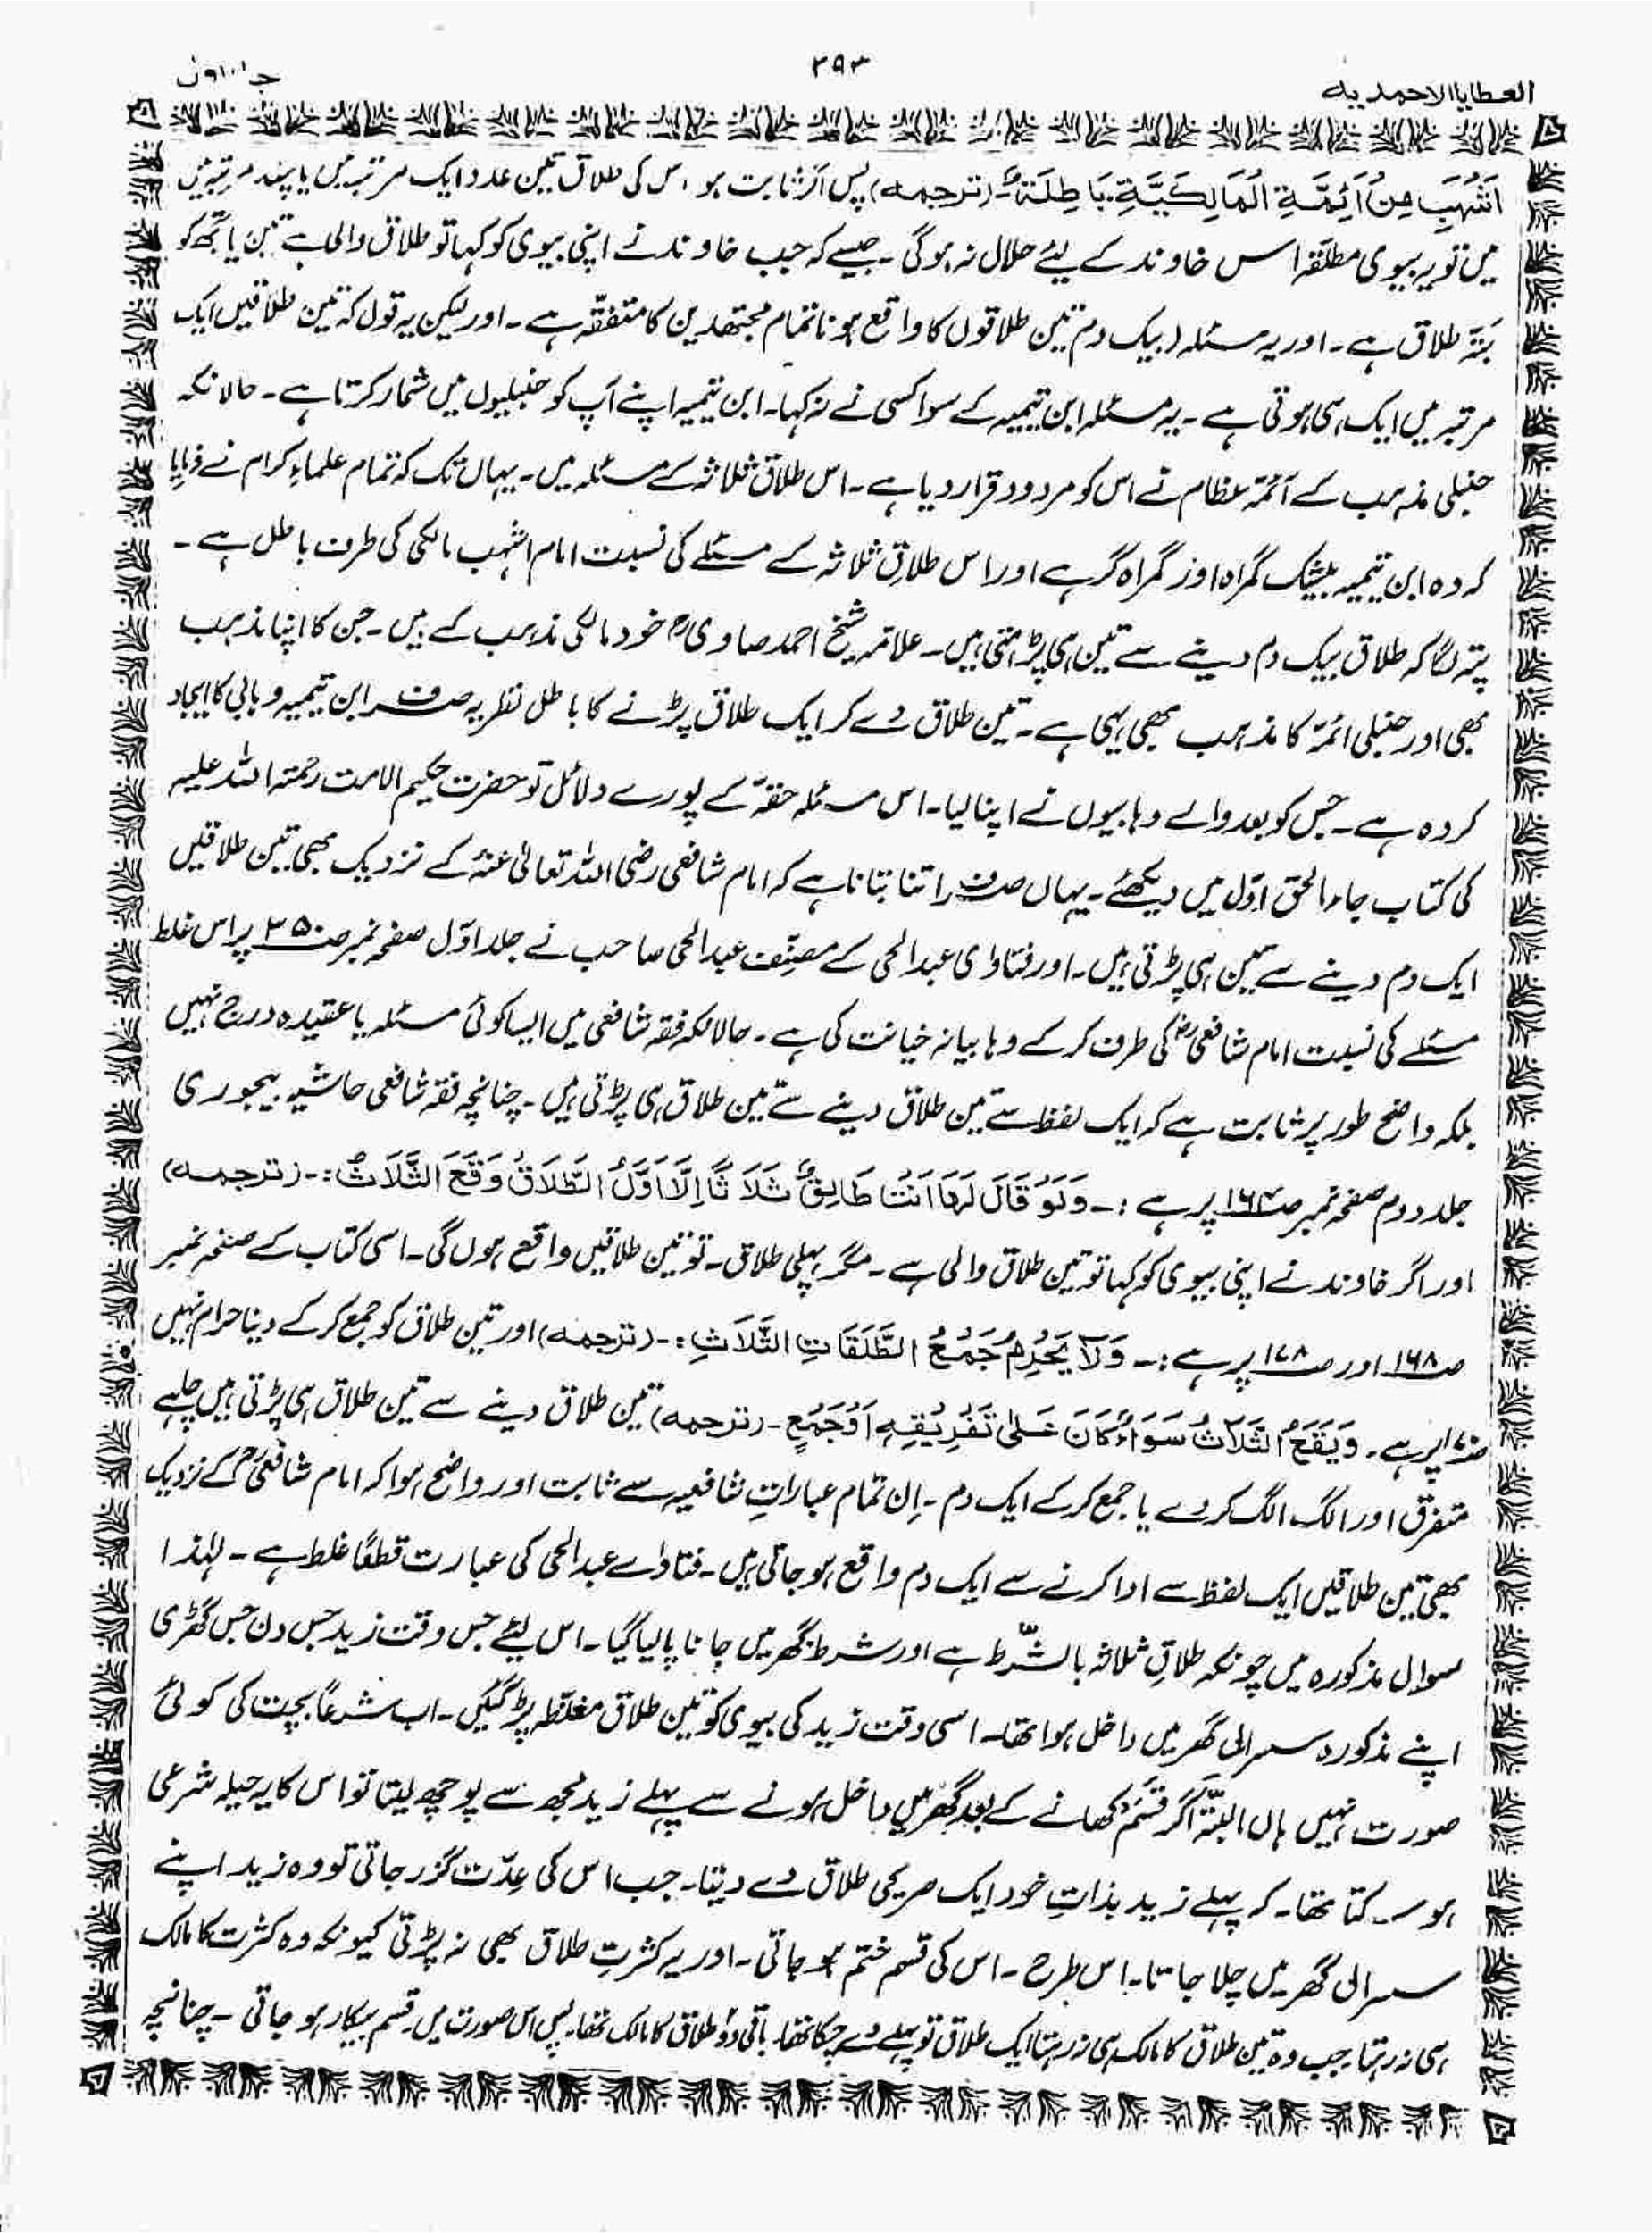 العطایا الاحمدیہ
۲۹۳
جلد اول
اَشْهَبَ مِنْ اَئِمَّةِ الْمَالِكِيَّةِ بَاطِلَةٌ۔ (ترجمہ) پس اگر ثابت ہو اس کی طلاق تین عدد ایک مرتبہ میں یا چند مرتبہ میں
میں تو یہ بیوی مطلقہ اس خاوند کے لیئے حلال نہ ہوگی۔ جیسے کہ جب خاوند نے اپنی بیوی کو کہا تو طلاق والی ہے تین یا تجھ کو
بَتّہ طلاق ہے۔ اور یہ مسئلہ (بیک دم تین طلاقوں کا واقع ہونا تمام مجتھدین کا متفقّہ ہے۔ اور لیکن یہ قول کہ تین طلاقیں ایک
مرتبہ میں ایک ہی ہوتی ہے۔ یہ مسئلہ ابن تیمیہ کے سوا کسی نے نہ کہا۔ ابن تیمیہ اپنے آپ کو حنبلیوں میں شمار کرتا ہے۔ حالانکہ
حنبلی مذہب کے آئمّہ عظام نے اس کو مردود قرار دیا ہے۔ اس طلاق ثلاثہ کے مسئلہ میں۔ یہاں تک کہ تمام علماءِ کرام نے فرمایا
کہ وہ ابن تیمیہ بیشک گمراہ اور گمراہ گر ہے اور اس طلاقِ ثلاثہ کے مسئلے کی نسبت امام اشہب مالکی کی طرف باطل ہے۔
پتہ لگا کہ طلاق بیک دم دینے سے تین ہی پڑ جاتی ہیں۔ علامّہ شیخ احمد صاویؒ خود مالکی مذہب کے ہیں۔ جن کا اپنا مذہب
بھی اور حنبلی ائمّہ کا مذہب بھی یہی ہے۔ تین طلاق دے کر ایک طلاق پڑنے کا باطل نظریہ صرف ابن تیمیہ وہابی کا ایجاد
کردہ ہے۔ جس کو بعد والے وہابیوں نے اپنا لیا۔ اس مسئلہ حقہّ کے پورے دلائل تو حضرت حکیم الامت رحمتہ اللہ علیہ
کی کتاب جاء الحق اوّل میں دیکھئے۔ یہاں صرف اتنا بتانا ہے کہ امام شافعی رضی اللہ تعالیٰ عنہٗ کے نزدیک بھی تین طلاقیں
ایک دم دینے سے تین ہی پڑتی ہیں۔ اور فتاوٰی عبدالحی کے مصنّف عبدالحی صاحب نے جلد اوّل صفحہ نمبر صـ۳۵۰ پر اس غلط
مسئلے کی نسبت امام شافعیؓ کی طرف کر کے وہابیانہ خیانت کی ہے۔ حالانکہ فقہ شافعی میں ایسا کوئی مسئلہ یا عقیدہ درج نہیں
بلکہ واضح طور پر ثابت ہے کہ ایک لفظ سے تین طلاق دینے سے تین طلاق ہی پڑتی ہیں۔ چنانچہ فقہ شافعی حاشیہ بیجوری
جلد دوم صفحہ نمبر صـ۱۶۴ پر ہے :۔ وَلَوْ قَالَ لَهَا اَنْتِ طَالِقٌ ثَلَاثًا اِلَّا اَوَّلَ الطَّلَاقِ وَقَعَ الثَّلَاثُ :۔ (ترجمہ)
اور اگر خاوند نے اپنی بیوی کو کہا تو تین طلاق والی ہے۔ مگر پہلی طلاق۔ تو تین طلاقیں واقع ہوں گی۔ اسی کتاب کے صفحہ نمبر
صـ۱۶۸ اور صـ۱۷۸ پر ہے :۔ وَلَا يَحْرِمُ جَمْعُ الطَّلَقَاتِ الثَّلَاثِ :۔ (ترجمہ) اور تین طلاق کو جمع کر کے دینا حرام نہیں
صـ۱۷۰ پر ہے۔ وَيَقَعُ الثَّلَاثُ سَوَاءٌ كَانَ عَلٰى تَفْرِيْقِهٖ اَوْجَمْعٍ۔ (ترجمہ) تین طلاق دینے سے تین طلاق ہی پڑتی ہیں چاہے
متفرق اور الگ الگ کر دے یا جمع کر کے ایک دم۔ اِن تمام عباراتِ شافعیہ سے ثابت اور واضح ہوا کہ امام شافعیؒ کے نزدیک
بھی تین طلاقیں ایک لفظ سے ادا کرنے سے ایک دم واقع ہو جاتی ہیں۔ فتاوٰے عبدالحی کی عبارت قطعًا غلط ہے۔ لہٰذا
سوال مذکورہ میں چونکہ طلاقِ ثلاثہ بالشّرط ہے اور شرط گھر میں جانا پا لیا گیا۔ اس لیئے جس وقت زید جس دن جس گھڑی
اپنے مذکورہ سسرالی گھر میں داخل ہوا تھا۔ اسی وقت زید کی بیوی کو تین طلاق مغلّظہ پڑ گئیں۔ اب شرعًا بچت کی کوئی
صورت نہیں ہاں البتّہ اگر قسم کھانے کے بعد گھر میں داخل ہونے سے پہلے زید مجھ سے پوچھ لیتا تو اس کا یہ حیلہ شرعی
ہو سکتا تھا۔ کہ پہلے زید بذاتِ خود ایک صریحی طلاق دے دیتا۔ جب اس کی عِدّت گزر جاتی تو وہ زید اپنے
سسرالی گھر میں چلا جاتا۔ اس طرح ۔ اس کی قسم ختم ہو جاتی۔ اور یہ کثرتِ طلاق بھی نہ پڑتی کیونکہ وہ کثرت کا مالک
ہی نہ رہتا۔ جب وہ تین طلاق کا مالک ہی نہ رہتا ایک طلاق تو پہلے دے چکا تھا۔ باقی دوٗ طلاق کا مالک تھا۔ پس اس صورت میں قسم بیکار ہو جاتی ۔ چنانچہ